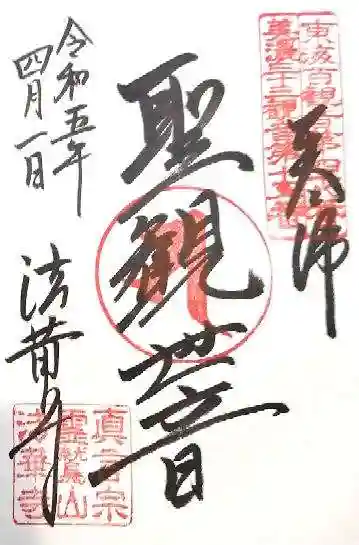 東海百観音第四
美濃三十三観音第十
奉拝
聖観世音
令和五年
四月一日
法華寺
真言宗
靈鷲山
法華寺